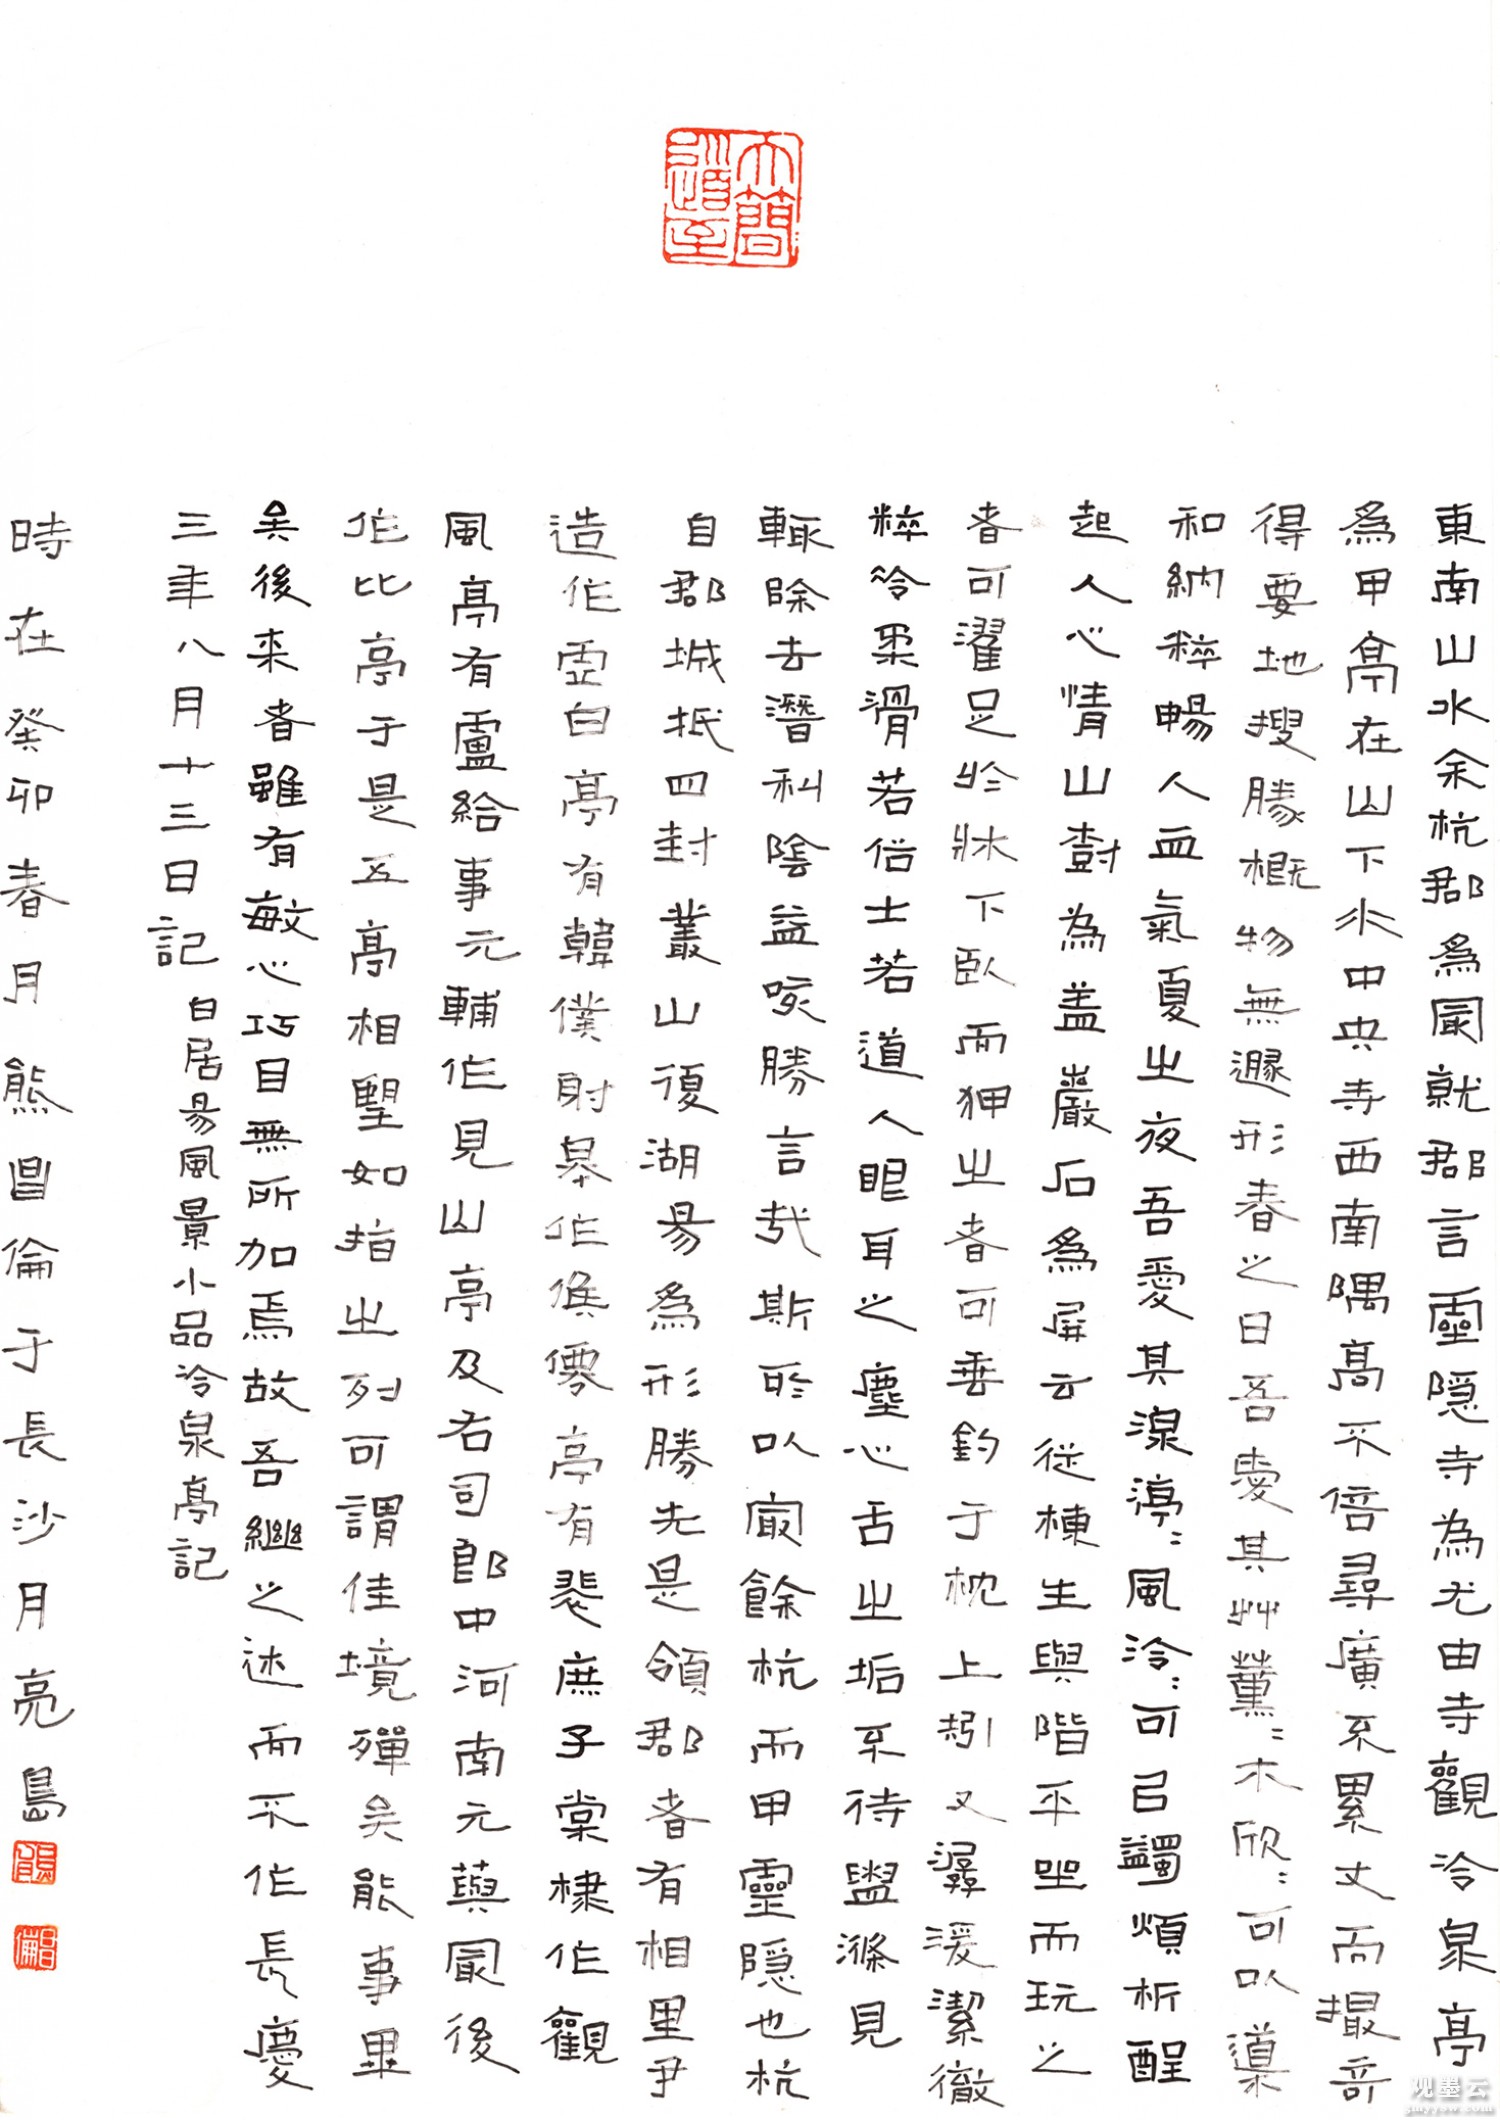 大簡道至
東南山水余杭郡為冣就郡言靈隱寺為尤由寺觀冷泉亭
為甲亭在山下水中央寺西南隅高不倍尋廣不累丈而撮奇
得要地搜勝概物無遯形春之日吾愛其艸薰薰木欣欣可以導
和納粹暢人血氣夏之夜吾愛其湶渟渟風泠泠可㠯蠲煩析酲
起人心情山樹為盖巖石為屏云從棟生與階平坐而玩之
者可濯足於牀下臥而狎之者可垂釣于枕上矧又潺湲潔徹
粹冷柔滑若俗士若道人眼耳之塵心舌之垢不待盥滌見
輒除去潛利陰益可勝言哉斯所以冣餘杭而甲靈隱也杭
自郡城抵四封叢山復湖易為形勝先是領郡者有相里尹
造作虛白亭有韓僕射皋作候僊亭有裴庶子棠棣作觀
風亭有盧給事元輔作見山亭及右司郎中河南元藇冣後
作此亭于是五亭相望如指之列可謂佳境殫矣能事畢
矣後来者雖有敏心巧目無所加焉故吾繼之述而不作長慶
三年八月十三日記 白居易風景小品冷泉亭記
時在癸卯春月熊昌倫于長沙月亮島
昌倫
观墨云
gmyyow.com